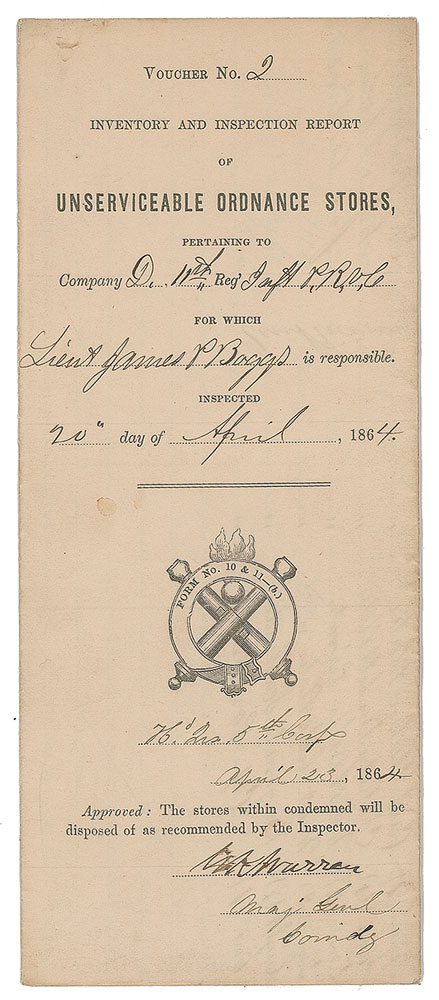 VOUCHER NO. 2
INVENTORY AND INSPECTION REPORT
OF
UNSERVICEABLE ORDNANCE STORES,
PERTAINING TO
Company D. 11th Reg't Inft P.R.V.C
FOR WHICH
Lieut James P Boggs is responsible.
INSPECTED
20" day of April, 1864.
FORM No. 10 & 11—(b.)
Hd Qrs, 5th Corps
April 23, 1864
Approved: The stores within condemned will be
disposed of as recommended by the Inspector.
GK Warren
Maj Genl
Comdg